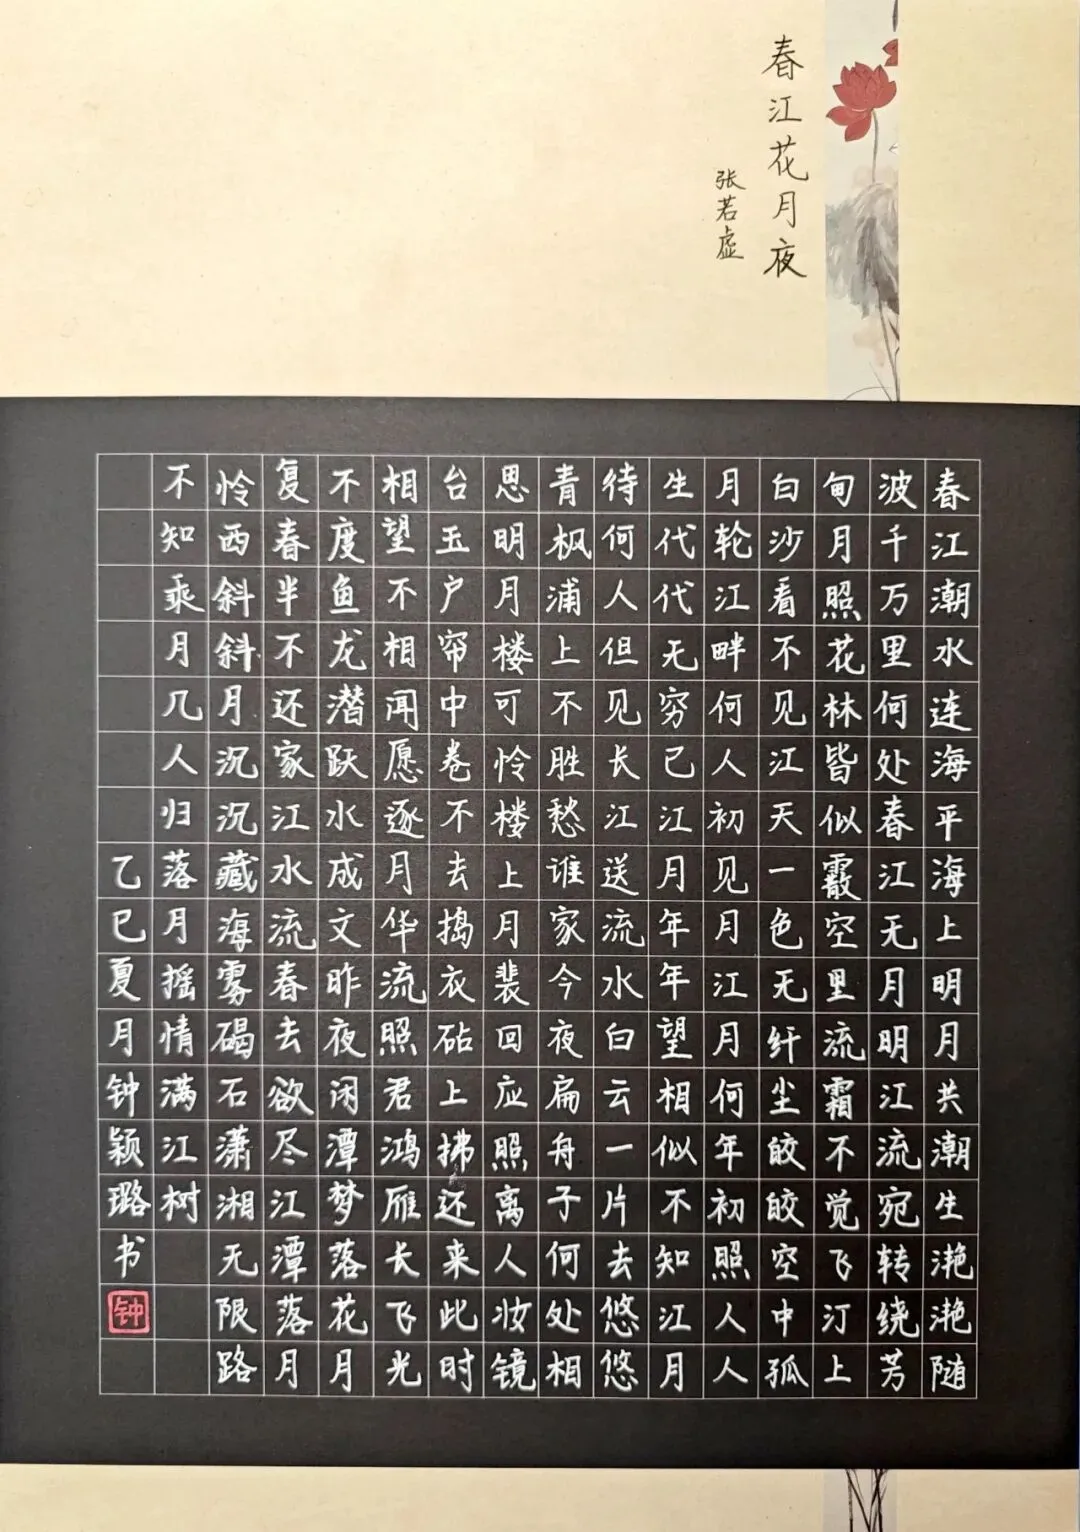 春江花月夜
张若虚
春江潮水连海平海上明月共潮生滟滟随
波千万里何处春江无月明江流宛转绕芳
甸月照花林皆似霰空里流霜不觉飞汀上
白沙看不见江天一色无纤尘皎皎空中孤
月轮江畔何人初见月江月何年初照人人
生代代无穷已江月年年望相似不知江月
待何人但见长江送流水白云一片去悠悠
青枫浦上不胜愁谁家今夜扁舟子何处相
思明月楼可怜楼上月裴回应照离人妆镜
台玉户帘中卷不去捣衣砧上拂还来此时
相望不相闻愿逐月华流照君鸿雁长飞光
不度鱼龙潜跃水成文昨夜闲潭梦落花月
复春半不还家江水流春去欲尽江潭落月
怜西斜斜月沉沉藏海雾碣石潇湘无限路
不知乘月几人归落月摇情满江树
乙巳夏月钟颖璐书
钟